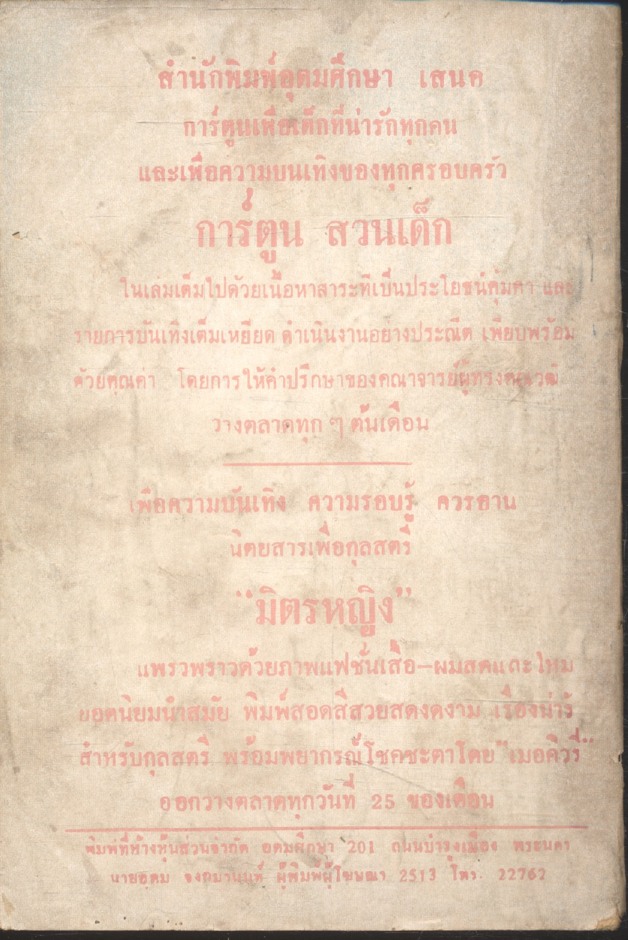 สำนักพิมพ์อุดมศึกษา เสนอ
การ์ตูนเพื่อเด็กที่น่ารักทุกคน
และเพื่อความบนเทิงของทุกครอบครัว
การ์ตูน สวนเด็ก
ในเล่มเต็มไปด้วยเนื้อหาสาระที่เป็นประโยชน์คุ้มค่า และ
รายการบันเทิงเต็มเหยียด ดำเนินงานอย่างประณีต เพียบพร้อม
ด้วยคุณค่า โดยการให้คำปรึกษาของคณาจารย์ผู้ทรงคุณวุฒิ
วางตลาดทุก ๆ ต้นเดือน
เพื่อความบันเทิง ความรอบรู้ ควรอ่าน
นิตยสารเพื่อกุลสตรี
"มิตรหญิง"
แพรวพราวด้วยภาพแฟชั่นเสื้อ–ผมสดและใหม่
ยอดนิยมนำสมัย พิมพ์สอดสีสวยสดงดงาม เรื่องน่ารู้
สำหรับกุลสตรี พร้อมพยากรณ์โชคชะตาโดย "เมอคิวรี่"
ออกวางตลาดทุกวันที่ 25 ของเดือน
พิมพ์ที่ห้างหุ้นส่วนจำกัด อุดมศึกษา 201 ถนนบำรุงเมือง พระนคร
นายอุดม ผู้พิมพ์ผู้โฆษณา 2513 โทร. 22762